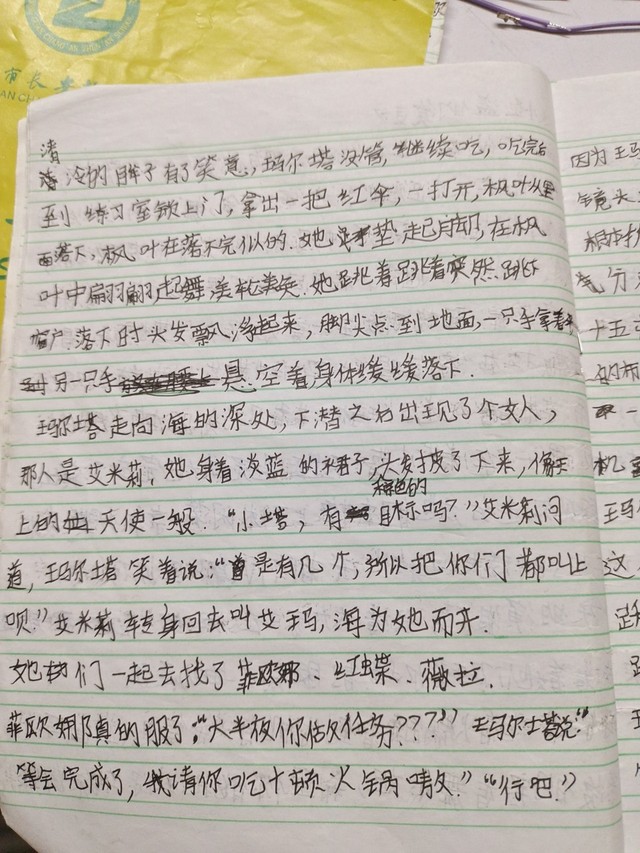 有长
ANCHANG
清
冷的眸子有了笑意,玛尔塔没管,继续吃,吃完后
到练习室锁上门,拿出一把红伞,一打开,枫叶从里
面落下,枫叶在落不完似的.她垫起脚,在枫
叶中翩翩起舞.她跳着跳着突然跳下
窗户.落下时头发飘浮起来,脚尖点到地面,一只手拿着伞
另一只手悬空着身体缓缓落下.
玛尔塔走向海的深处,下潜之后出现了个女人,
那人是艾米莉,她身着淡蓝的裙子,头发披了下来,像天
上的天使一般.“小塔,有棕色的目标吗?”艾米莉问
道,玛尔塔笑着说:“是有几个,所以把你们都叫上
呗.”艾米莉转身回去叫艾玛,海为她而开.
她们一起去找了菲欧娜、红蝶、薇拉.
菲欧娜真的服了:“大半夜你做任务???”玛尔塔说:“
等会完成了,我请你吃十顿火锅”“行吧.”
因为玛
镜头
气分
十五
的
一
机
玛
这